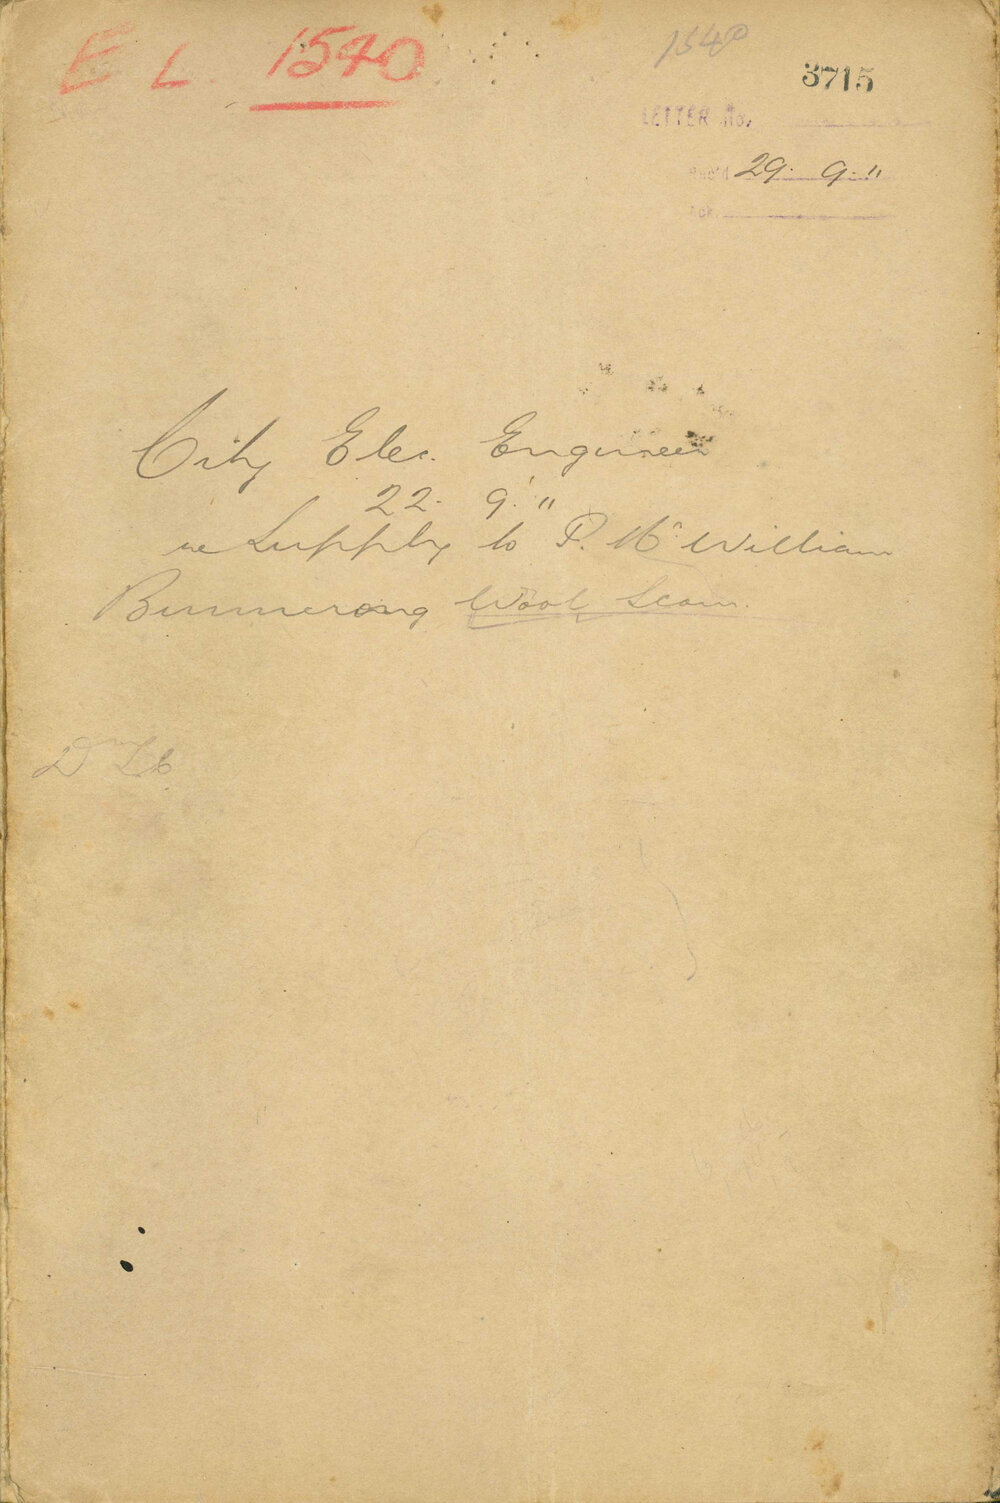 E L. 1540
1540
3715
LETTER No.
Rec'd 29. 9. 11
Ack.
City Elec. Engineer
22. 9. 11
re Supply to P. McWilliam
Bunnerong Wool Scour.